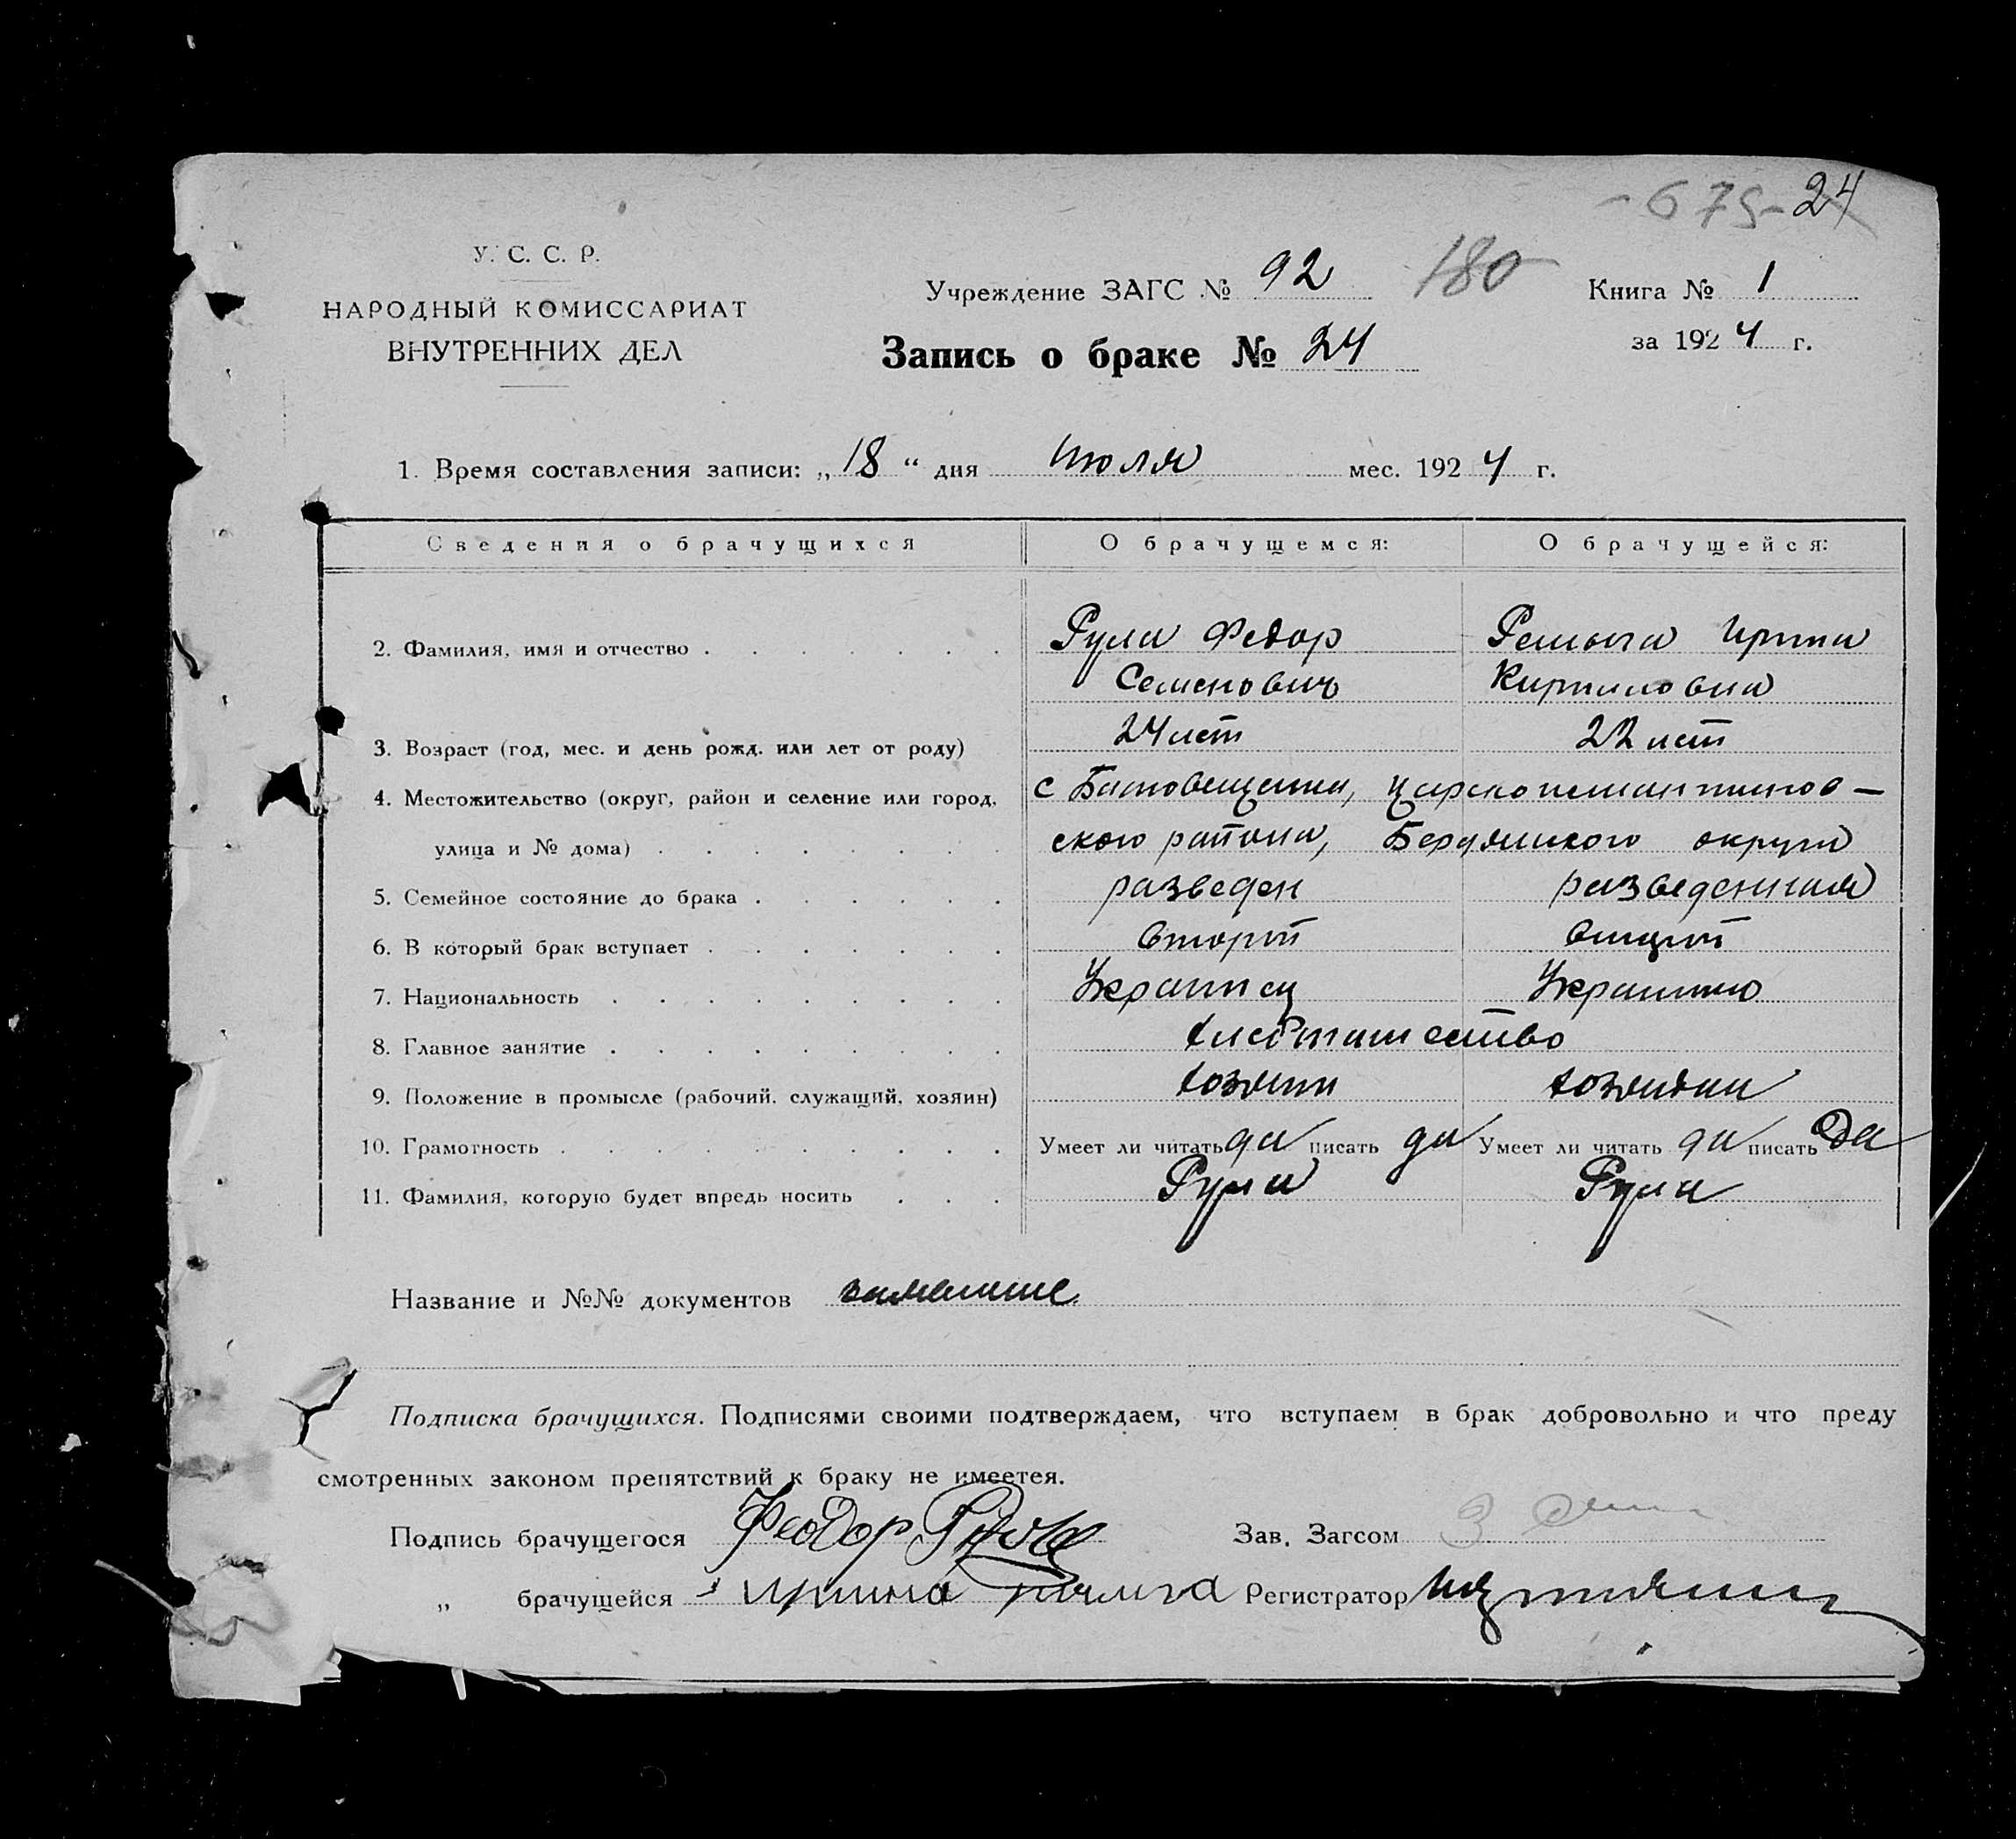 - 675 - 24
У. С. С. Р.
НАРОДНЫЙ КОМИССАРИАТ
ВНУТРЕННИХ ДЕЛ
Учреждение ЗАГС № 92 180 Книга № 1
Запись о браке № 24 за 1924 г.
1. Время составления записи: „18“ дня июля мес. 1924 г.
Сведения о брачущихся О брачущемся: О брачущейся:
2. Фамилия, имя и отчество Рула Федор Ирина
Семенович Кирилловна
3. Возраст (год, мес. и день рожд. или лет от роду) 24 лет 22 лет
4. Местожительство (округ, район и селение или город, с
улица и № дома) ского района, Бердянского округа
5. Семейное состояние до брака разведен разведенная
6. В который брак вступает второй второй
7. Национальность Украинец Украинка
8. Главное занятие хлебопашество
9. Положение в промысле (рабочий, служащий, хозяин) хозяин
10. Грамотность Умеет ли читать да писать да Умеет ли читать да писать Да
11. Фамилия, которую будет впредь носить Рула Рула
Название и №№ документов заявление
Подписка брачущихся. Подписями своими подтверждаем, что вступаем в брак добровольно и что преду
смотренных законом препятствий к браку не имеетея.
Подпись брачущегося Феодор Зав. Загсом
„ брачущейся Ирина Регистратор